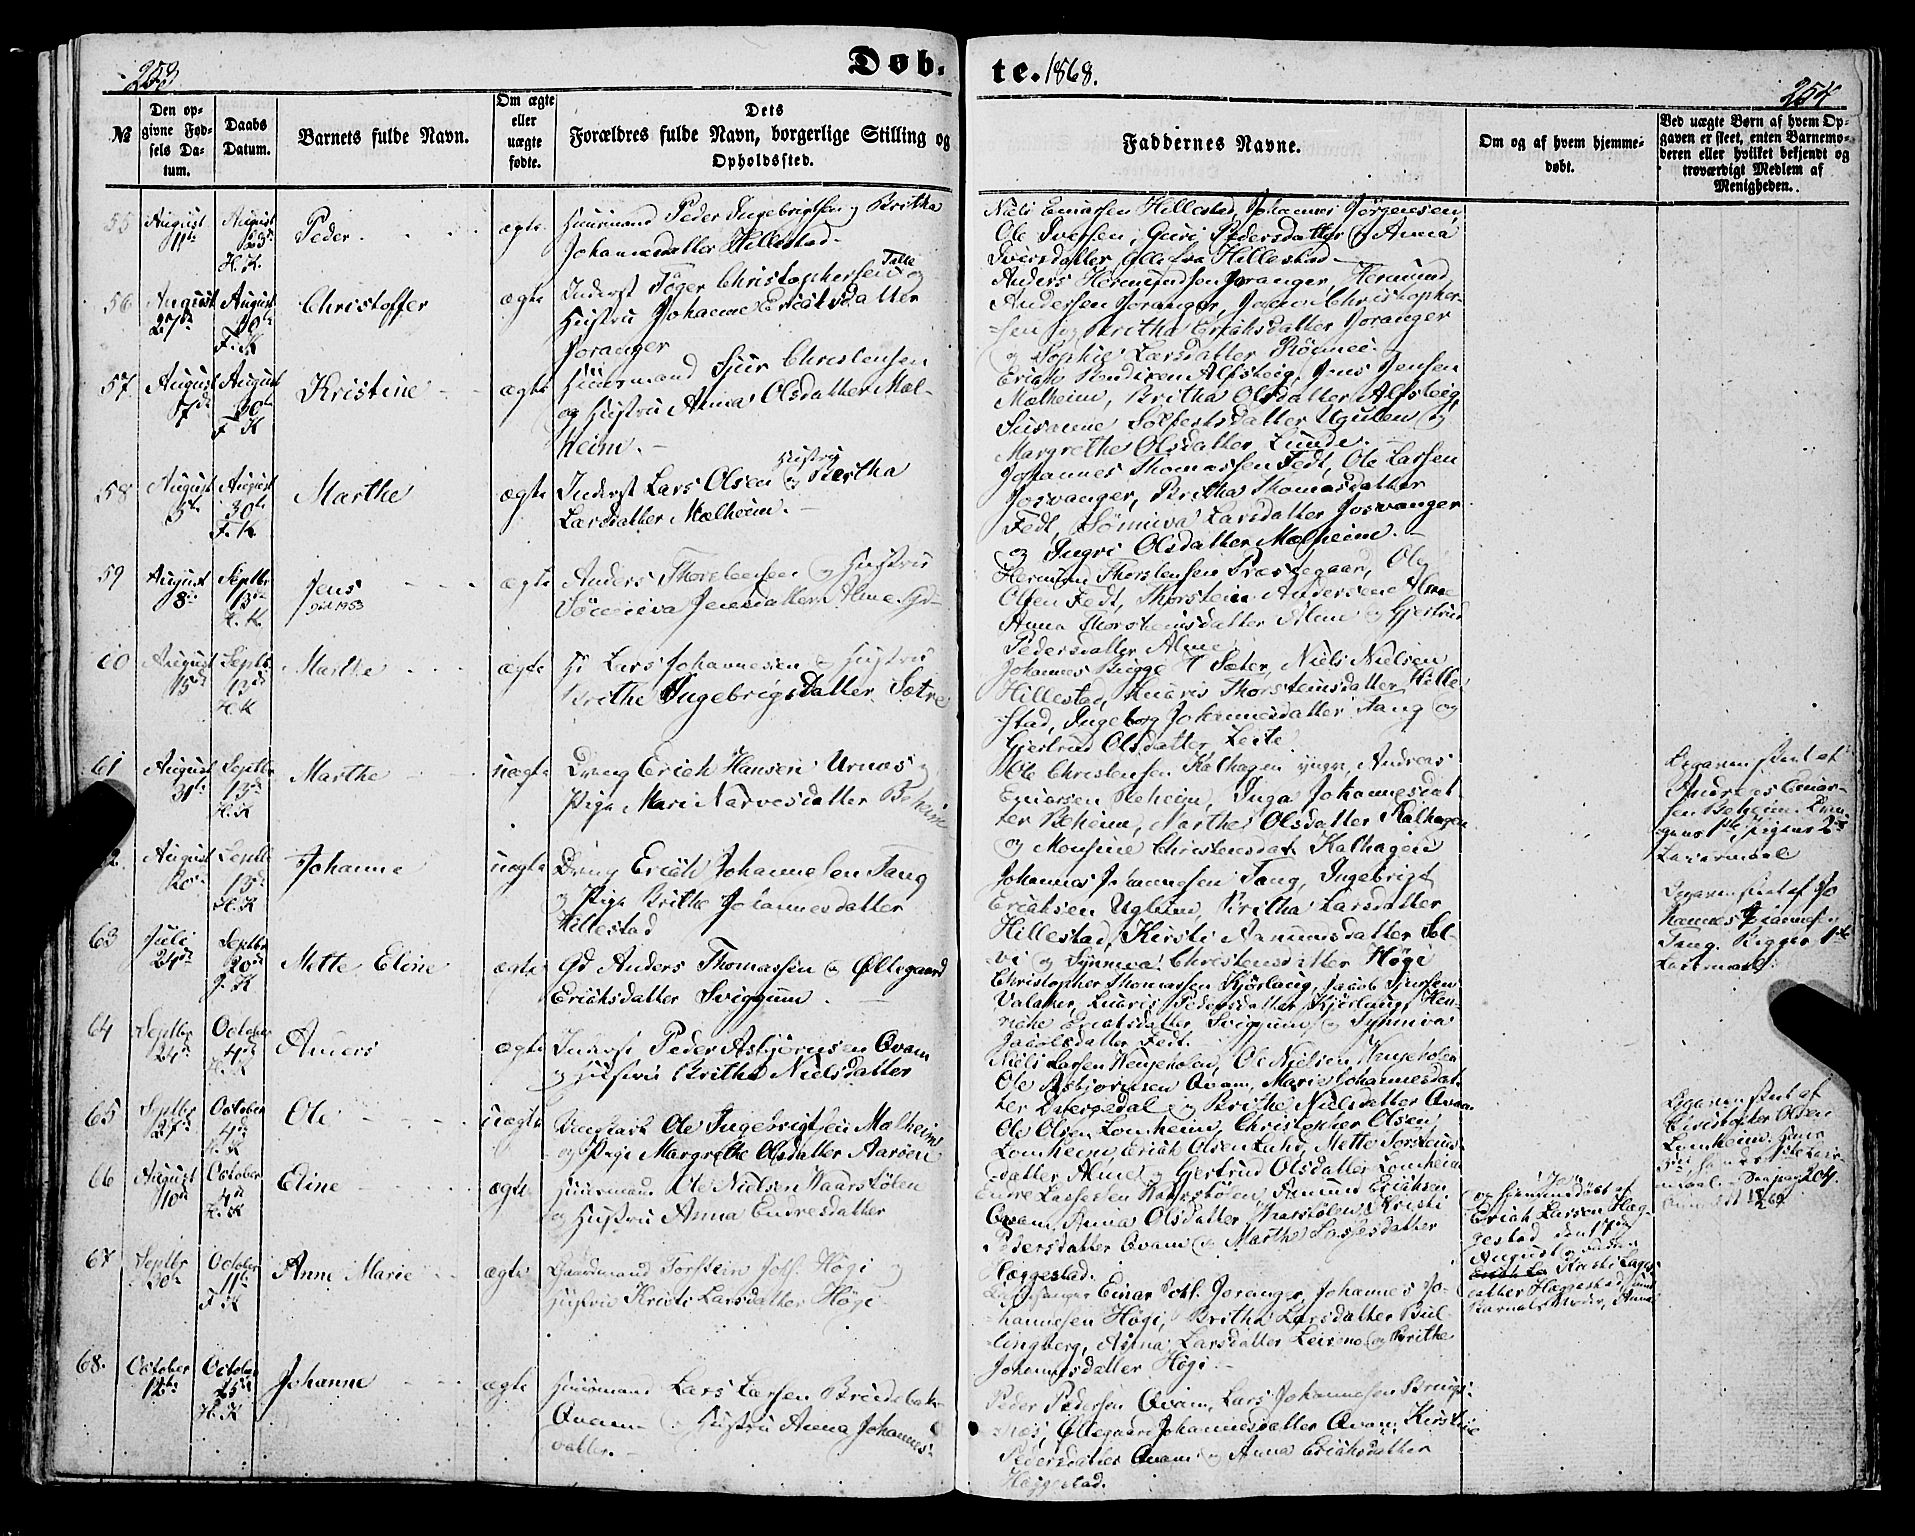 253
Døb-
te. 1868.
254
№
Den op-
givne Fød-
sels Da-
tum.
Daabs
Datum.
Barnets fulde Navn.
Om ægte
eller
uægte
fødte.
Dets
Forældres fulde Navn, borgerlige Stilling og
Opholdssted.
Faddernes Navne.
Om og af hvem hjemme-
døbt.
Ved uægte Børn af hvem Op-
gaven er skeet, enten Barnemo-
deren eller hvilket bekjendt og
troværdigt Medlem af
Menigheden.
55
August
11te
August
H. K.
Peder
ægte
Huusmand Peder Ingebrigtsen og Britha
Johannesdatter Hillestad
Niels Einarsen Hillestad, Johannes Jørgensen,
Ole Iversen, Guri Pedersdatter og Anna
Iversdatter, alle fra Hillestad
56
August
27de
August
30te
F. K
Christoffer
ægte
Inderst Tøger Christophersen og
Hustru Johanne Erichsdatter
Joranger
Anders Hermundsen Joranger, Hermund
Andersen Joranger, Christopher-
sen og Britha Erichsdatter Joranger
og Sophie Larsdatter Rønnei
57
August
7de
August
30te
F K
Kristine
ægte
Huusmand Sjur Christensen
og Hustru Anna Olsdatter Mæl-
heim.
Erich Bendixen Alfsteig, Jens Jensen
Mælheim, Britha Olsdatter Alfsteig,
Susanne Solfestsdatter Ugulen og
Margrethe Olsdatter Lunde.
58
August
5te
August
30te
F. K
Marthe
ægte
Inderst Lars Olsen og Hustru Bertha
Larsdatter Mælheim.
Johannes Thomassen Fedt, Ole Larsen
Josvanger, Britha Thomasdatter
Fedt, Sønneva Larsdatter Josvanger
og Ingri Olsdatter Mælheim.
59
August
8de
Septbr
13de
H. K.
Jens
1953
ægte
Anders Thorstensen og Hustru
Sønneva Jensdatter Alme.
Hermund Thorstensen Præstegaar, Ole
Olsen Fedt, Thorstein Andersen Alme
Anna Thorsteinsdatter Alme og Gjertrud
Pedersdatter Alme
60
August
15de
Septbr
13de
H. K
Marthe
ægte
Lars Johannesen og Hustru
Brithe Ingebrigtsdatter Sætre
Johannes Sæter, Niels Nielsen
Hillestad, Kuaris Thorsteinsdatter Hille-
stad, Ingeborg Johannesdatter Tang og
Gjertrud Olsdatter Leite
61
August
31te
Septbr
13de
H. K
Marthe
uægte
Dreng Erich Hansen Urnæs og
Pige Mari Narvesdatter Beheim
Ole Christensen Kalhagen yngre, Andreas
Einarsen Beheim, Inga Johannesdat-
ter Beheim, Marthe Olsdatter Kalhagen
og Monsine Christensdat. Kalhagen
Opgaven skeet af
Andreas Einar-
sen Beheim. Dren-
gens 1ste, Pigens 2det
Leiermaal
August
20de
Septbr
13de
H. K
Johanne
uægte
Dreng Erich Johannesen Tang
og Pige Brithe Johannesdatter
Hillestad
Johannes Johannesen Tang, Ingebrigt
Erichsen Uglum, Britha Larsdatter
Hillestad, Kirsti Aamundsdatter Sol-
vi og Synneva Christensdatter Høgi
Opgaven skeet af Jo
hannes Johannes.
Tang. Begges 1ste
Leiermaal.
63
Juli
24de
Septbr
20de
H. K
Mette Eline
ægte
Gd Anders Thomassen og Øllegaard
Erichsdatter Sviggum.
Christopher Thomassen Kjørlaug, Jacob Sjursen
Valaker, Kuaris Pedersdatter Kjørlaug, Hen-
rikke Erichsdatter Sviggum og Synneva
Jacobsdatter Fedt.
64
Septbr
24de
October
4de
H. K
Anders
ægte
Inderst Peder Asbjørnsen Qvam
og Hustru Britha Nielsdatter
Niels Larsen Kengeholen, Ole Nielsen Kengeholen
Ole Asbjørnsen Qvam, Marie Johannesdat-
ter Dalsedal og Brithe Nielsdatter Qvam
65
Septbr
27de
October
4de
H. K
Ole
uægte
Ungkarl Ole Ingebrigtsen Mælheim
og Pige Margrethe Olsdatter Aarøen
Ole Olsen Lomheim, Christopher Olsen
Lomheim, Erich Olsen Lund, Mette Torsteins-
datter Alme og Gjertrud Olsdatter Lomheim
Opgaven skeet af
Christopher Olsen
Lomheim.
66
August
10de
October
4de
H. K
Eline
ægte
Huusmand Ole Nielsen Haarstølen
og Hustru Anna Endresdatter
Endre Lassesen Haarstølen, Aamund Erichsen
Qvam, Anna Olsdatter Haarstølen, Kristi
Pedersdatter Qvam og Marthe Lassesdatter
Hæggestad.
Ja
og hjemmedøbt af
Erich Larsen Hæg-
gestad
August
Kristi Lasses-
datter Hæggestad, samt
Barnets Moder, Anna
67
Septbr
30te
October
11te
F. K
Anne Marie
ægte
Gaardmand Torstein Joh. Høgi og
Hustru Kristi Larsdatter Høgi
Kirkesanger Einar Joh. Joranger, Johannes Jo-
hannesen Høgi, Britha Larsdatter Bul
lingberg, Anna Larsdatter Leirmo og Brithe
Johannesdatter Høgi
68.
October
12te
October
25de
H. K
Johanne
ægte
Huusmand Lars Larsen Breidebak
Qvam og Hustru Anna Johannes-
datter.
Peder Pedersen Qvam, Lars Johannesen
Øllegaard Johannesdatter Qvam, Kirstine
Pedersdatter Qvam og Anna Erichsdatter
Heggestad.